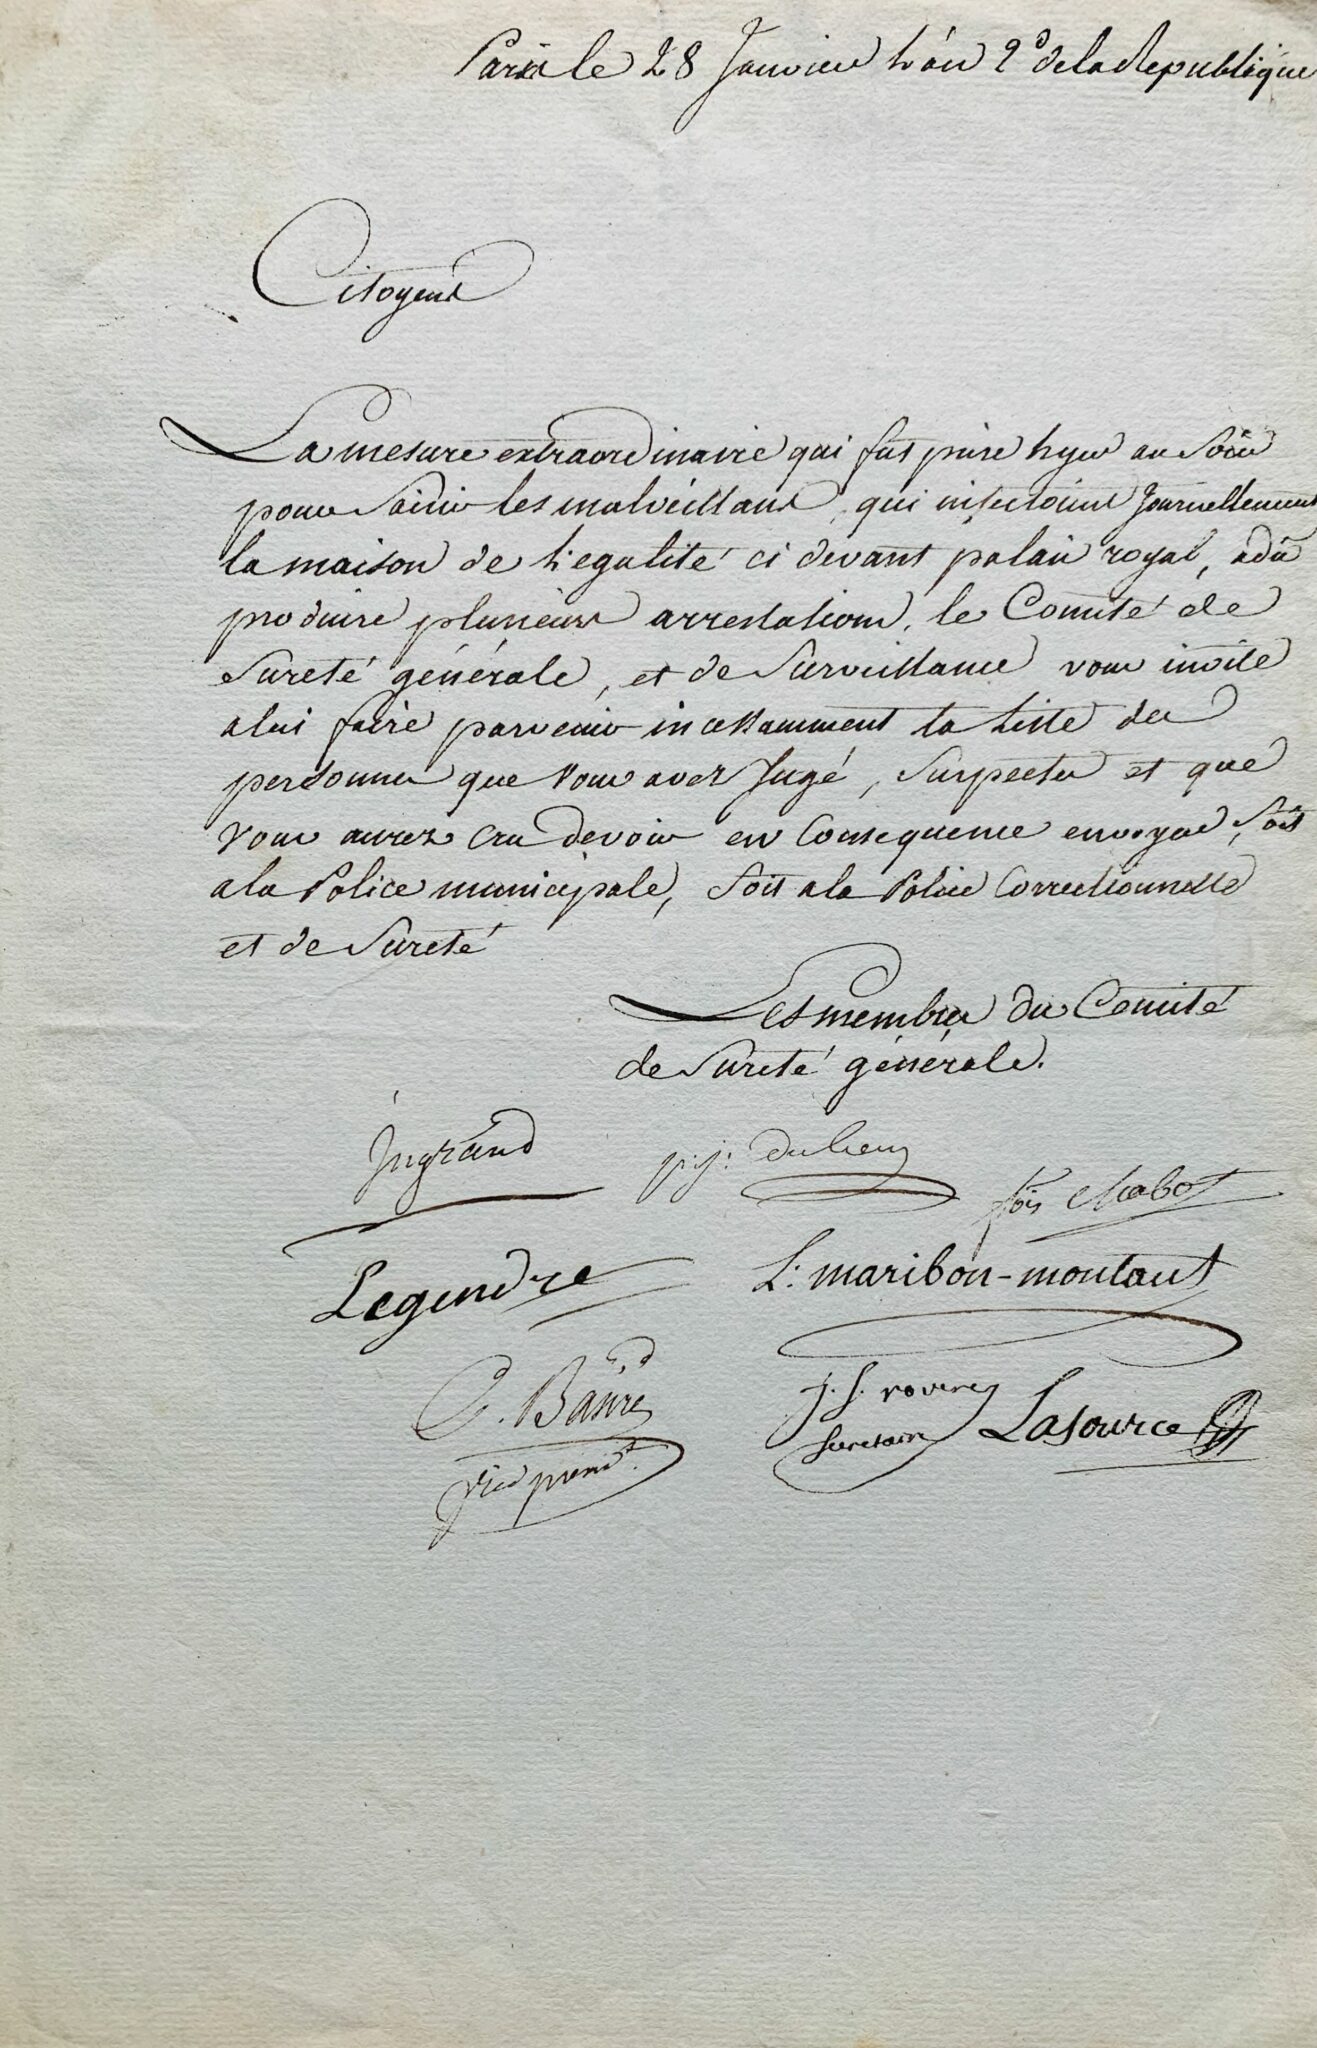 Paris le 28 Janvier L'an 2d de la Republique
Citoyens
La mesure extraordinaire qui fut prise hyer au Soir
pour Saisir les malveillans, qui infectoient Journellement
la maison de L'egalité ci devant palais royal, a dû
produire plusieurs arrestations. le Comité de
Sureté générale, et de Surveillance vous invite
a lui faire parvenir incessamment la Liste des
personnes que vous avez Jugé, Suspectes et que
vous aurez cru devoir en Consequence envoyer, Soit
a la Police municipale, Soit a la Police Correctionnelle
et de Sureté
Les membres du Comité
de Sureté générale.
Ingrand
p. j. duhem
fois Chabot
Legendre
L. maribon-montaut
C. Basire
vice présidt.
J. S. rovere
Secretaire
Lasource